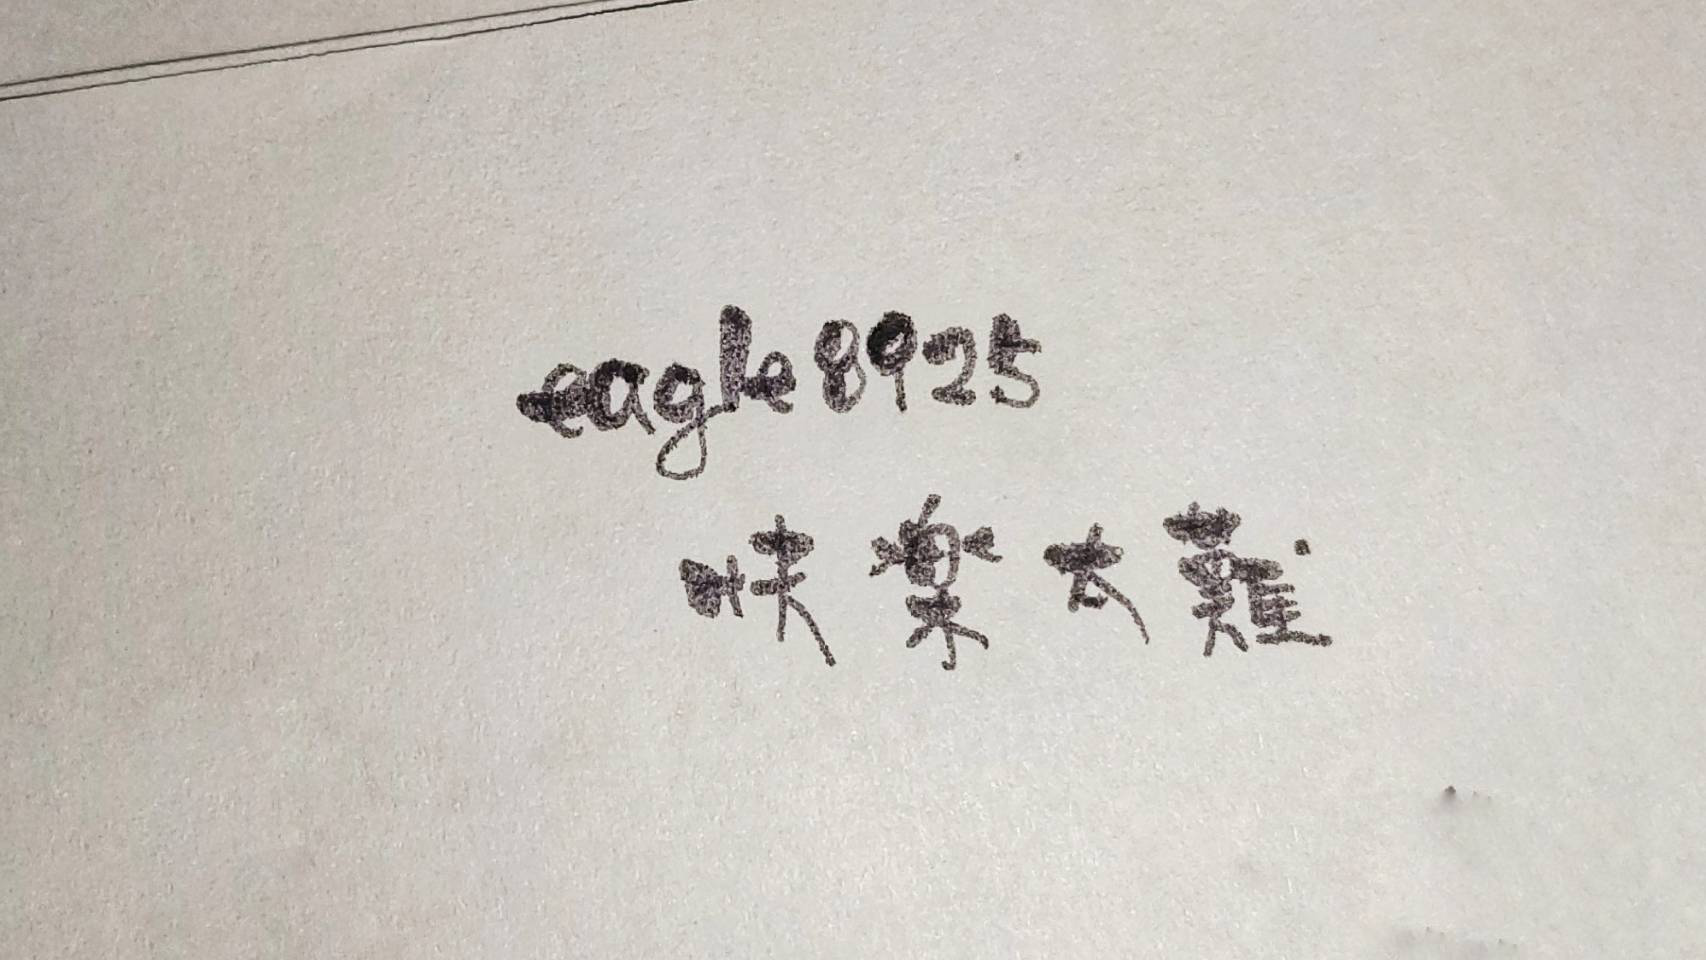 eagle8925
快樂太難